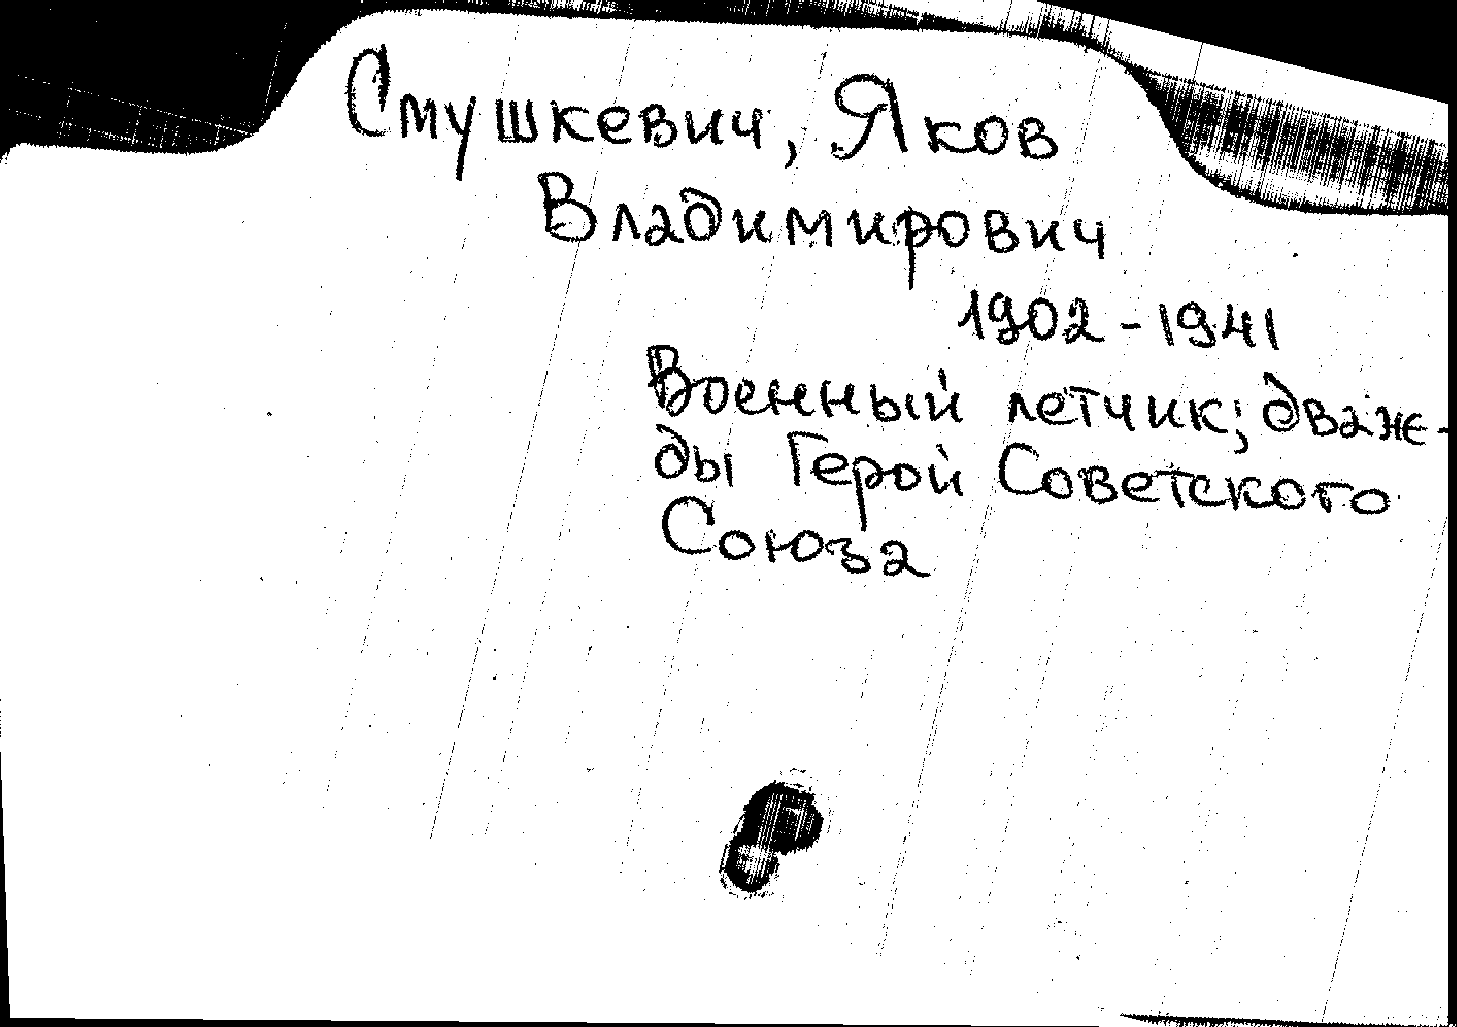 Смушкевич, Яков
Владимирович
1902-1941
Военный летчик; дваж-
ды Герой Советского
Союза